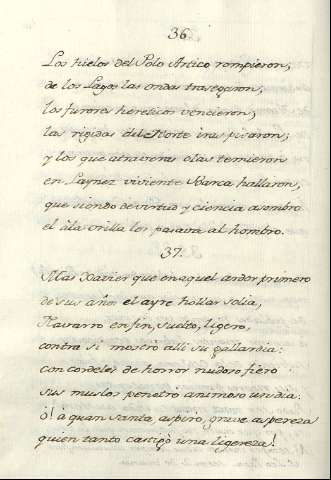 36.
Los hielos del Polo Artico rompieron,
de los Lagos las ondas trasegaron,
los furores hereticos vencieron,
las rigidas del Norte iras pisaron;
y los que atraveras olas temieron
en Laynez viviente Barca hallaron,
que siendo de virtud y ciencia asombro
el à la orilla los pasava al hombro.
37.
Mas Xavier que en aquel ardor primero
de sus años el ayre hollar solia,
Navarro en fin, suelto, ligero,
contra si mostrò alli su gallardia:
con cordeles de horror nudoso fiero
sus muslos penetrò animoso un dia:
ò! à quan santa, aspiró, grave aspereza
quien tanto castigò una ligereza!